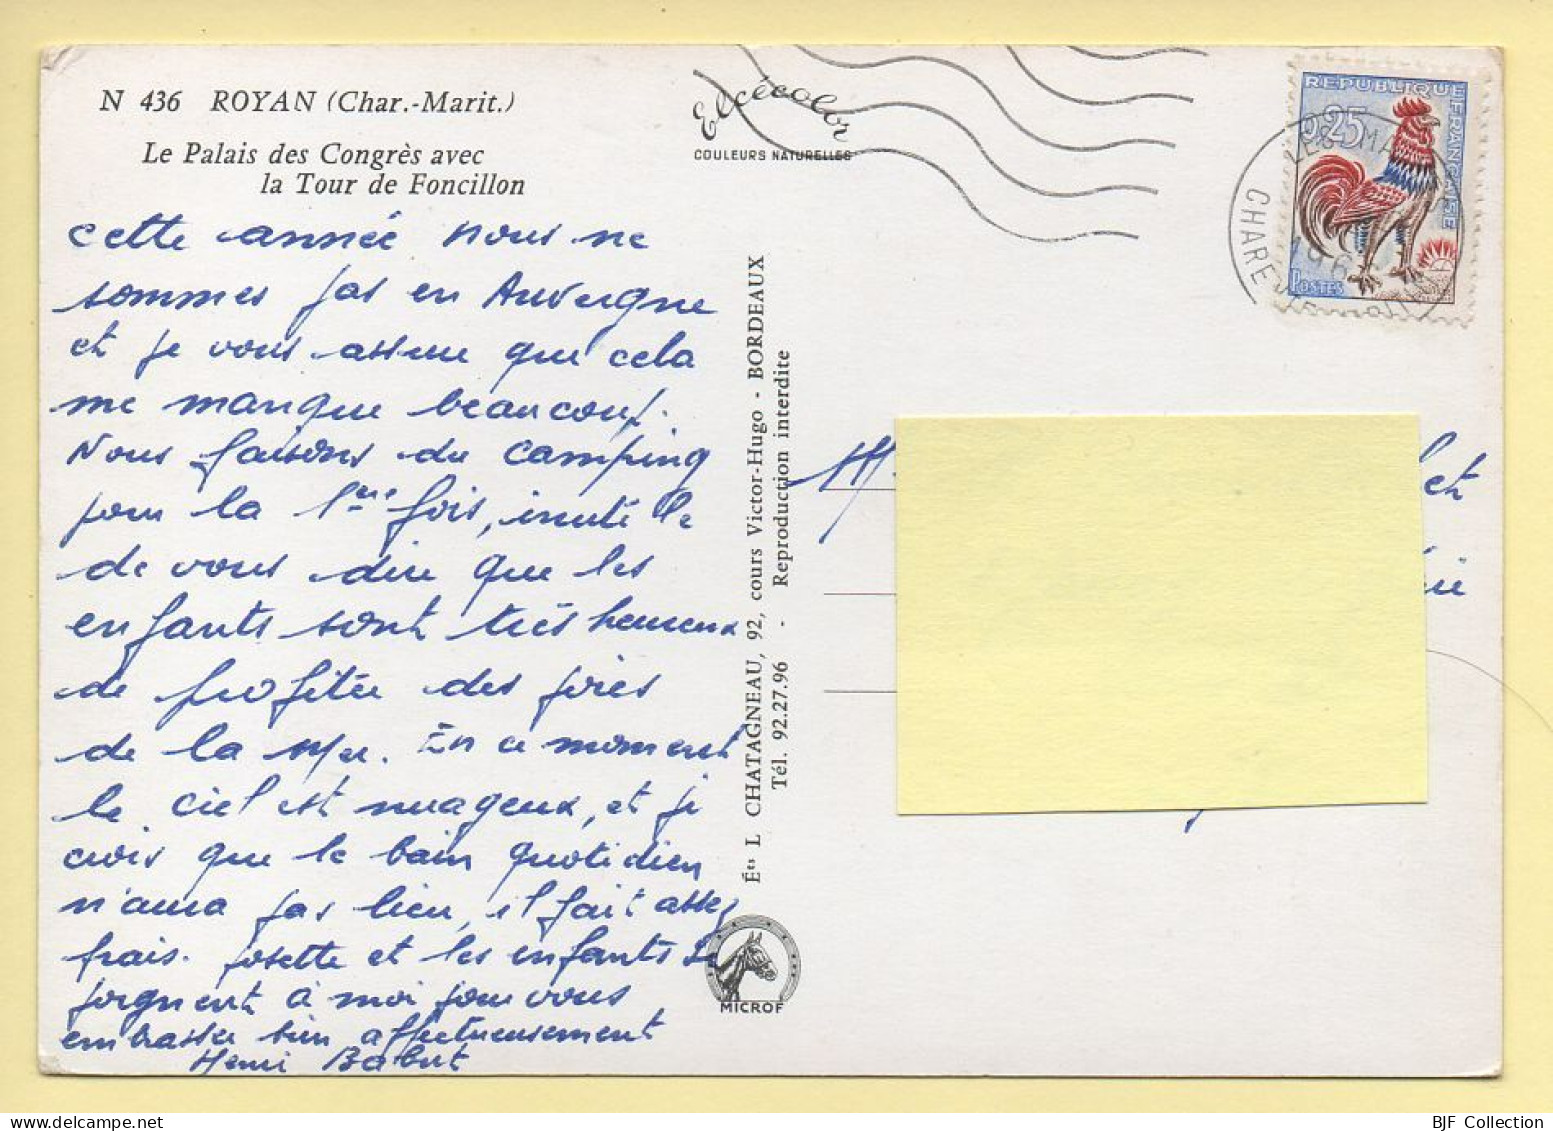 N 436 ROYAN (Char.-Marit.)
Le Palais des Congrès avec
la Tour de Foncillon
cette année nous ne
sommes pas en Auvergne
et je vous assure que cela
me manque beaucoup.
Nous faisons du camping
pour la 1ère fois, inutile
de vous dire que les
enfants sont très heureux
de profiter des joies
de la Mer. En ce moment
le ciel est nuageux, et je
crois que le bain quotidien
n'aura pas lieu, il fait assez
frais. Josette et les enfants se
joignent à moi pour vous
embrasser bien affectueusement
Henri Babut
Elcécolor
COULEURS NATURELLES
Éts L CHATAGNEAU, 92, cours Victor-Hugo - BORDEAUX
Tél. 92.27.96 - Reproduction interdite
MICROF
REPUBLIQUE FRANÇAISE
0,25
POSTES
LES MA
CHARENTE
196
et
BJF Collection